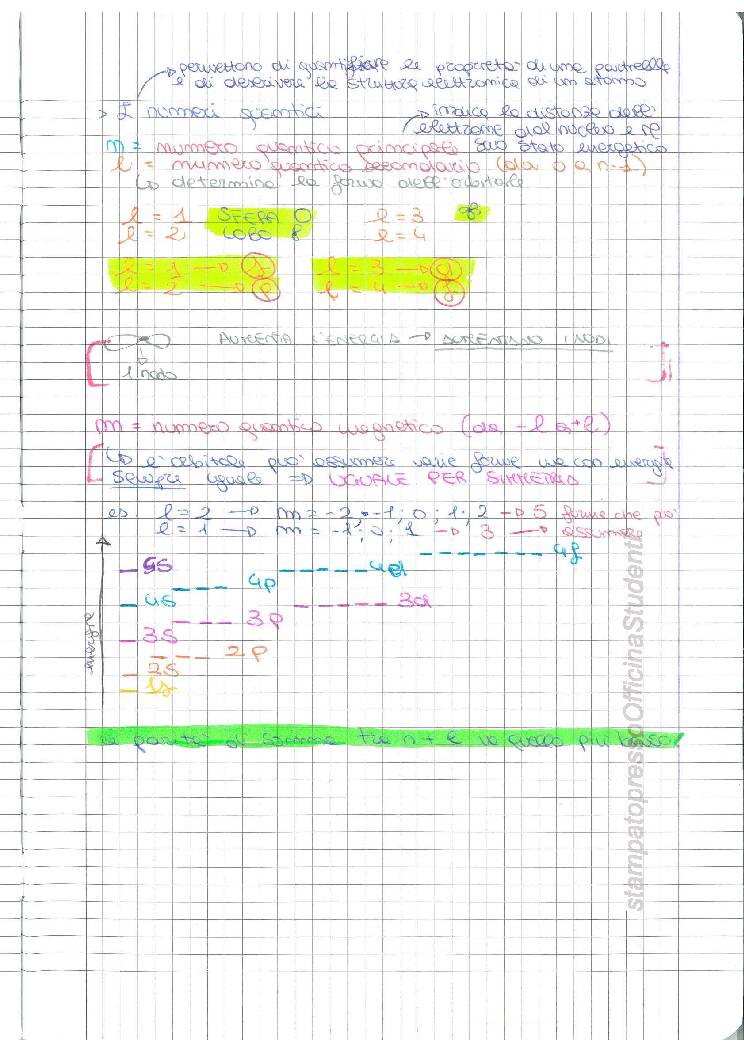 permettono di quantificare le proprietà di una particella
e di descrivere la struttura elettronica di un atomo
> I numeri quantici
indica la distanza dell'
elettrone dal nucleo e il
suo stato energetico
n = numero quantico principale
l = numero quantico secondario (da 0 a n-1)
↳ determina la forma dell'orbitale
l = 1 SFERA l = 3
l = 2 LOBO l = 4
l = 1 → s l = 3 → d
l = 2 → p l = 4 → f
AUMENTA L'ENERGIA → AUMENTANO I NODI
1 nodo
m = numero quantico magnetico (da -l a +l)
↳ l'orbitale può assumere varie forme ma con energia
sempre uguale ⇒ UGUALE PER SIMMETRIA
es. l = 2 → m = -2; -1; 0; 1; 2 → 5 forme che può
l = 1 → m = -1; 0; 1 → 3 → assumere
4f
5s 4d
4p
4s 3d
3p
3s
2p
2s
1s
energia
a parità di somma tra n + l va quello più basso
stampatopressoOfficinaStudenti